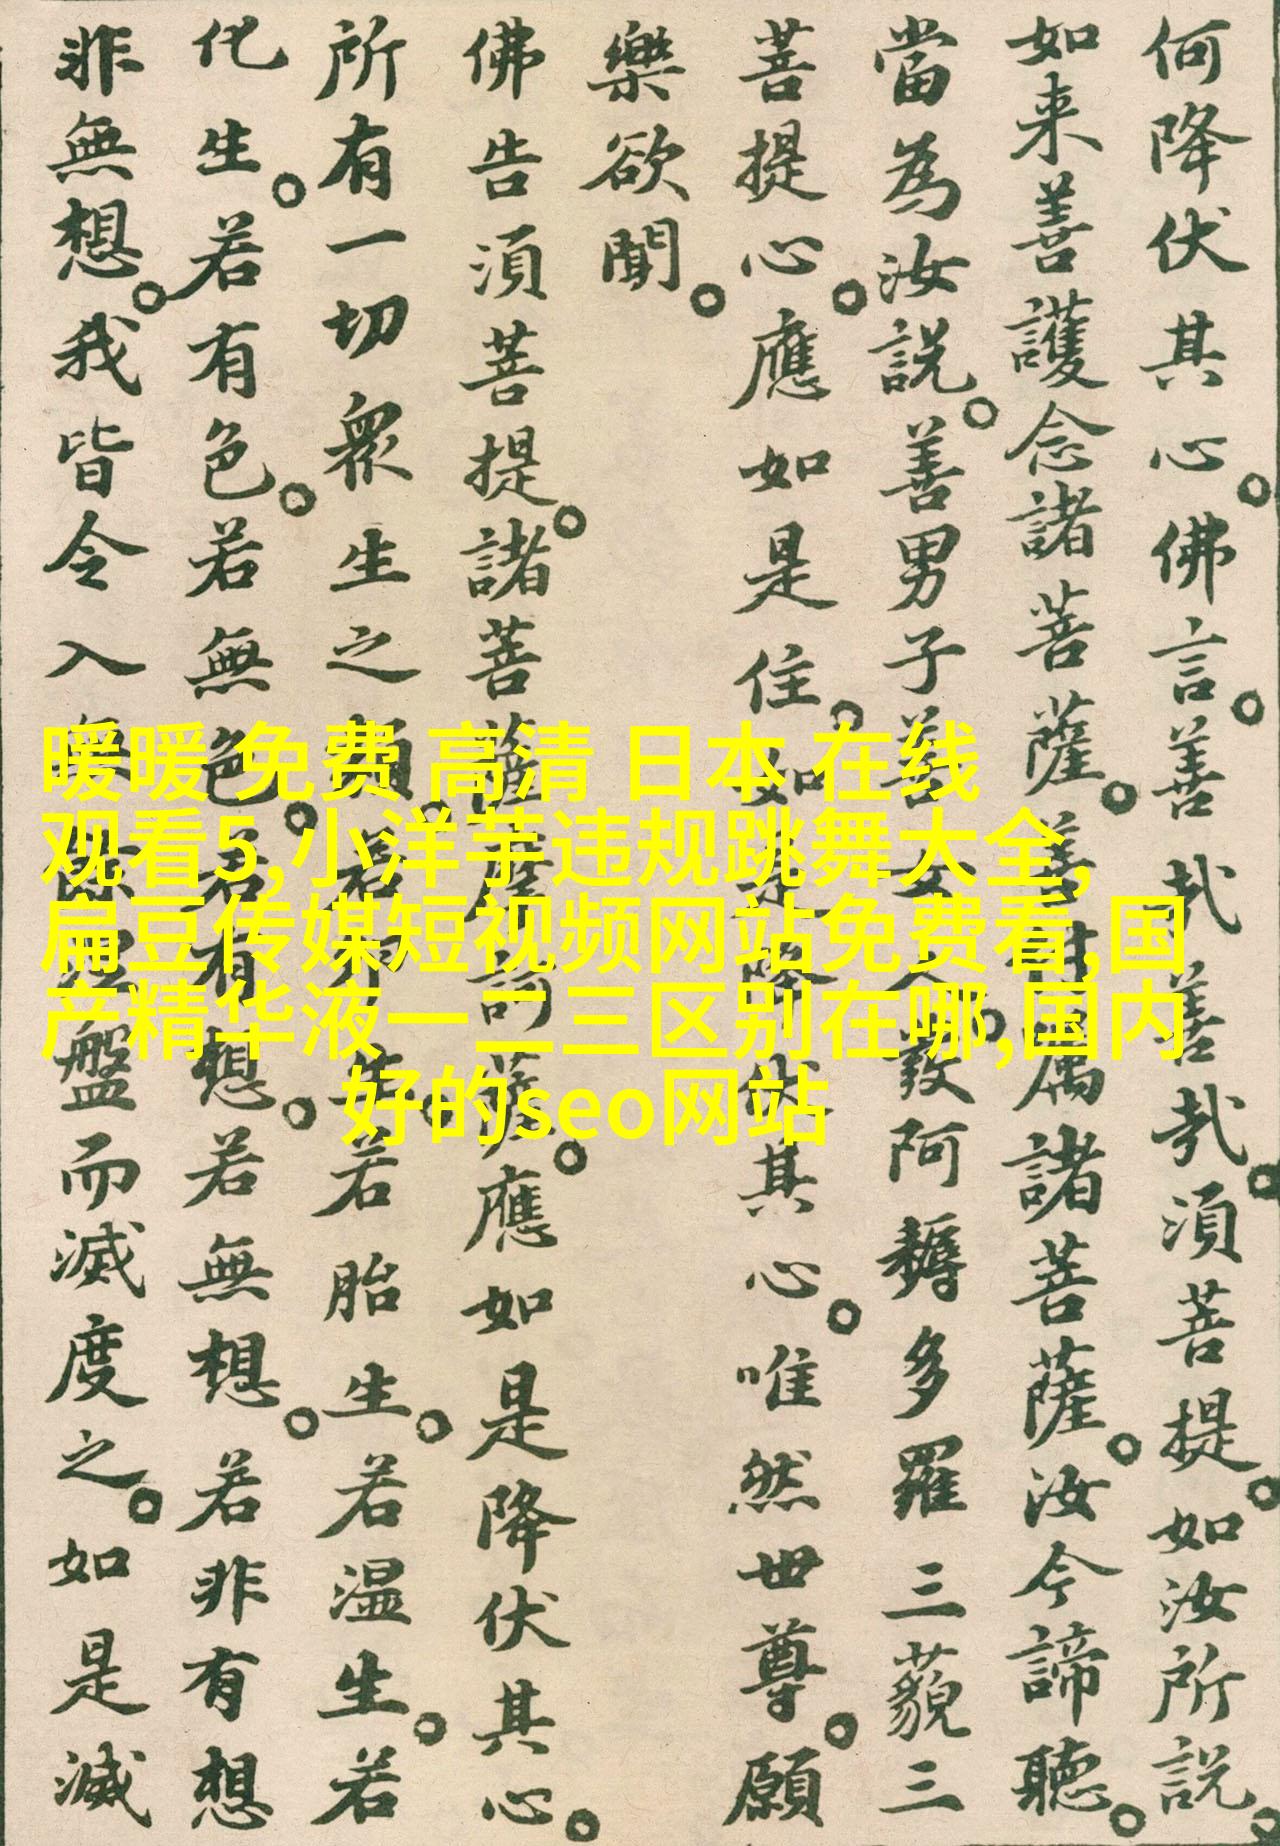 何降伏其心。佛言。善哉善哉。須菩提。如汝所說。
如来善護念諸菩薩。善付属諸菩薩。汝今諦聽。
當為汝說。善男子善女人。發阿耨多羅三藐三
菩提心。應如是住。如是降伏其心。唯然世尊。願
樂欲聞。
佛告須菩提。諸菩薩摩訶薩。應如是降伏其心。
所有一切衆生之類。若卵生。若胎生。若温生。若
化生。若有色。若無色。若有想。若無想。若非有想
非無想。我皆令入無餘涅盤而滅度之。如是滅
暖暖 免费 高清 日本 在线
观看5,小洋芋违规跳舞大全,
扁豆传媒短视频网站免费看,国
产精华液一二三区别在哪,国内
好的seo网站